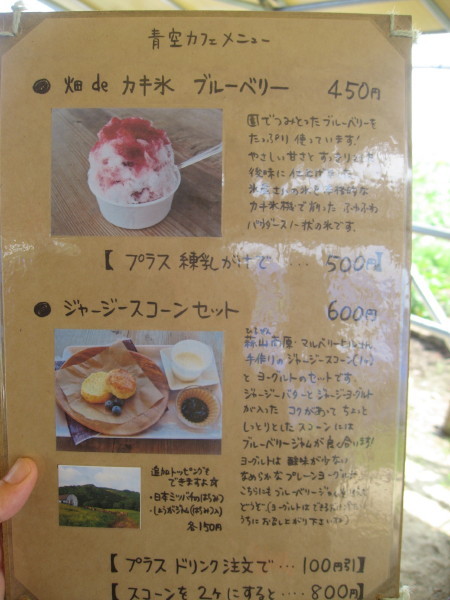 青空カフェメニュー
● 畑 de カキ氷 ブルーベリー 450円
園でつみとったブルーベリーを
たっぷり使っています!
やさしい甘さと
後味に
カキ氷機で削った ふわふわ
パウダースノー状の氷です。
【 プラス 練乳がけで ・・・・ 500円】
● ジャージースコーンセット 600円
ひるぜん
蒜山高原・マルベリー
手作りのジャージースコーン
とヨーグルトのセットです
ジャージーバターとジャージーヨーグルト
が入った コクがあって ちょっと
しっとりとしたスコーンには
ブルーベリージャムが良く合います!
ヨーグルトは 酸味が少ない
なめらかな プレーンヨーグルト
こちらにも ブルーベリージャム
どうぞ(ヨーグルトは
うちにお召し上り下さい
追加トッピングも
できますよ☆
・日本ミツバチのはちみつ
・しょうがジャム(はちみつ入)
各150円
【 プラス ドリンク注文で ・・・ 100円引】
【 スコーンを 2ヶにすると・・・ 800円】